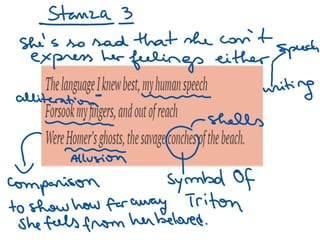 Stanza 3
she's so sad that she can't
express her feelings either
speech
writing
The language I knew best, my human speech
alliteration
Forsook my fingers, and out of reach
shells
Were Homer's ghosts, the savage conches of the beach.
Allusion
comparison
to show how far away
she feels from her beloved.
symbol of
Triton